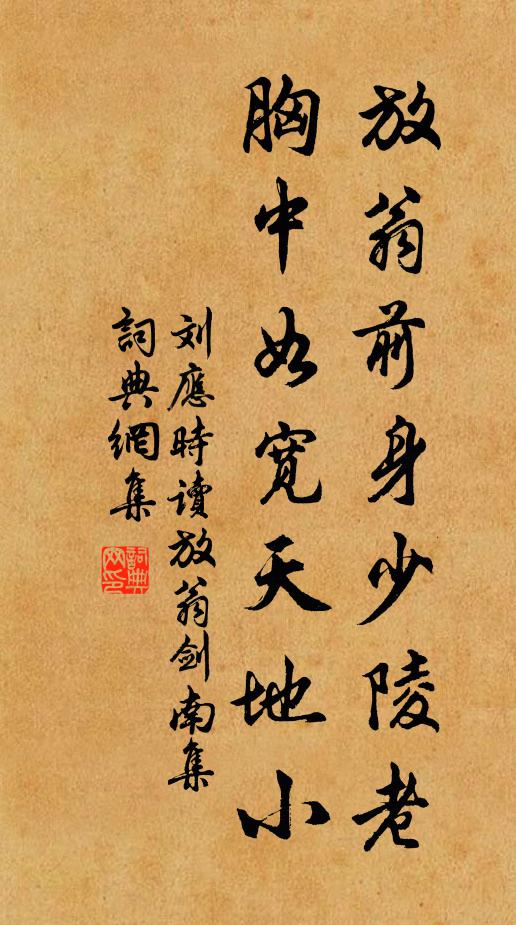 放翁前身少陵老
胸中如寛天地小
刘應時讀放翁劍南集
詞典網集
詞典
网印